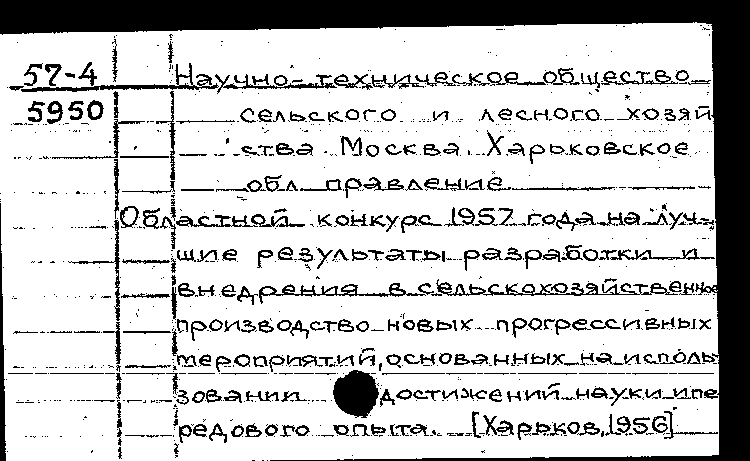 57-4 Научно-техническое общество
5950 сельского и лесного хозяй
ства. Москва. Харьковское
обл. правление.
Областной конкурс 1957 года на луч-
шие результаты разработки и
внедрения в сельскохозяйственное
производство новых прогрессивных
мероприятий, основанных на исполь
зовании достижений науки и пе
редового опыта. [Харьков, 1956]